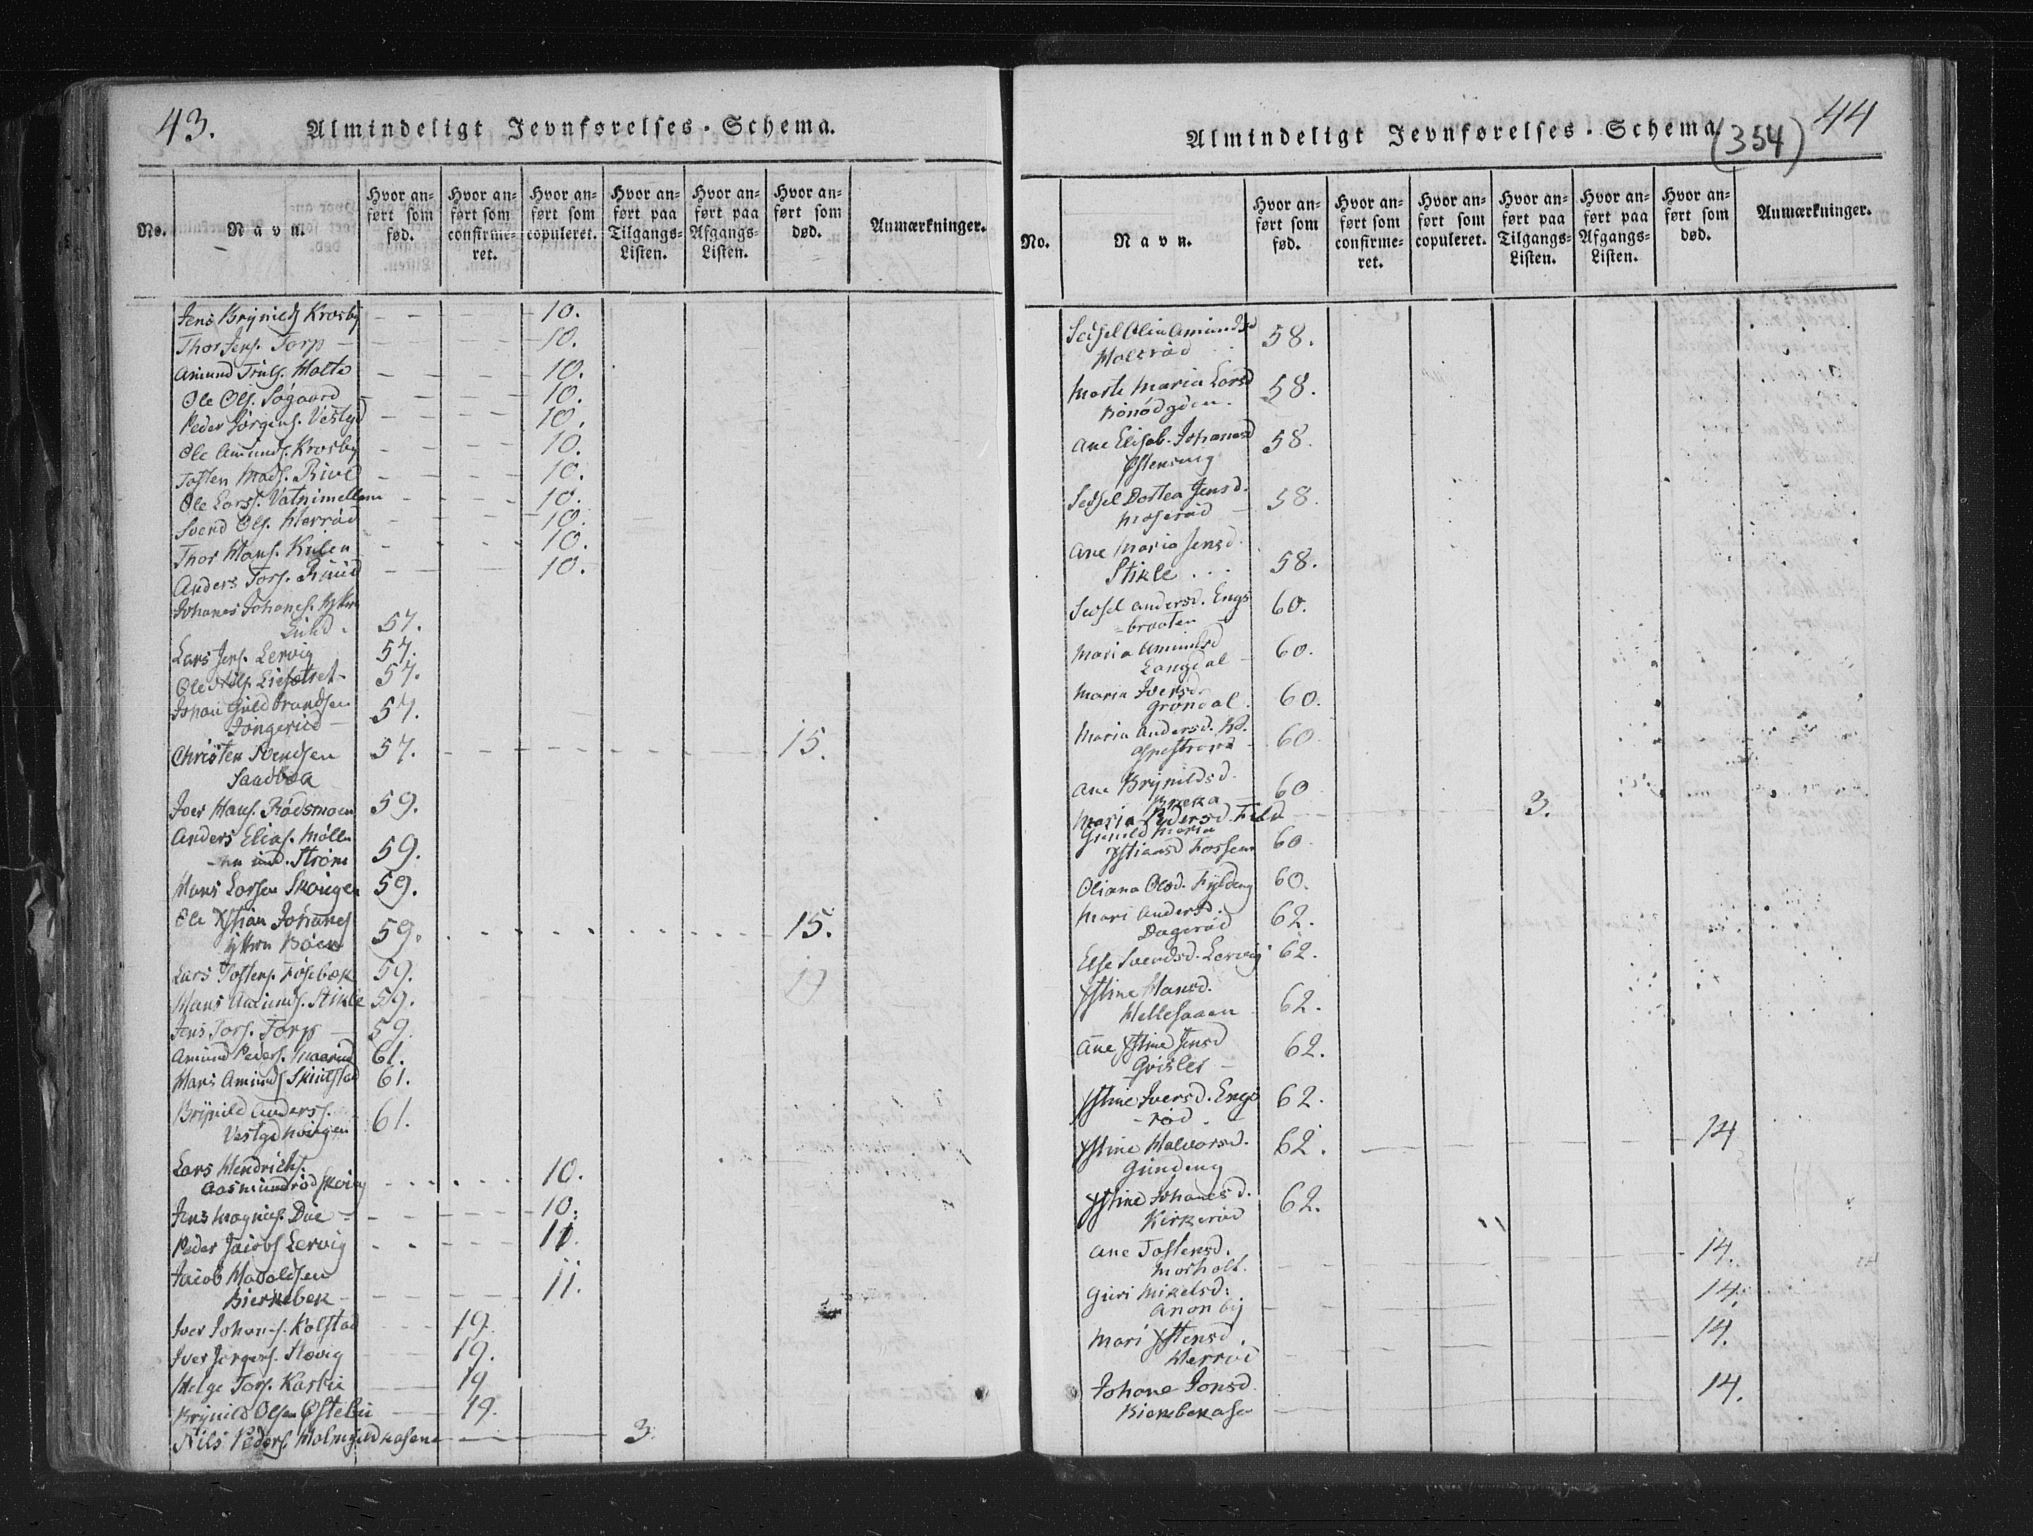 43.
Almindeligt Jevnførelses-Schema.
No.
Navn.
Hvor an-
ført som
fød.
Hvor an-
ført som
confirme-
ret.
Hvor an-
ført som
copuleret.
Hvor an-
ført paa
Tilgangs-
Listen.
Hvor an-
ført paa
Afgangs-
Listen.
Hvor an-
ført som
død.
Anmærkninger.
Jens Brynilds Krosby 10.
Thor Jens. Torp 10.
Amund Truls. Holte 10.
Ole Ols. Søgaard 10.
Peder Jørgens. Vestgd 10.
Ole Amunds. Krosby 10.
Tosten Mads. Rive 10.
Ole Larss. Vatnimellem 10.
Svend Ols. Herrød 10.
Thor Hans. Kulen 10.
Anders Tors. Ruud 10.
Johanes Johanes.
Lund. 57.
Lars Jens. Lervig 57.
Ole Nils. 57.
Johan Guldbrandsen
57.
Christen Svendsen 57. 15.
Saadbæk
Iver Hans. Rødsmoen 59.
Anders Elias. Mølle
Strøm 59.
Hans Larsen Skougen 59.
Ole Xstian Johanes
59. 15.
Lars Tostens. Fosebæk 59. 19
Hans Amunds. Stikle 59.
Jens Tors. Torp 59.
Amund Peders. 61.
Hans Amunds 61.
Brynild Anderss. 61.
Lars Hendrichs.
Aasmundrød 10.
Jens Magnus. Due 10.
Peder Jacobs Lervig 11.
Jacob
Bierkebek 11.
Iver Johans. Kolstad 19.
Iver Jørgens. Slævig 19.
Helge Tors. Kasbie 19.
Brynild Olsen Østebu 19.
Nils Peders 3.
44
Almindeligt Jevnførelses-Schema.
(354)
No.
Navn.
Hvor an-
ført som
fød.
Hvor an-
ført som
confirme-
ret.
Hvor an-
ført som
copuleret.
Hvor an-
ført paa
Tilgangs-
Listen.
Hvor an-
ført paa
Afgangs-
Listen.
Hvor an-
ført som
død.
Anmærkninger.
Sedsel Olia Amundsd
58.
Marte Maria Larsd
58.
Ane Elisab. Johanesd
Østensvig 58.
Sedsel Dortea Jensd.
Moserød 58.
Ane Maria Jensd.
Stikle 58.
Sedsel Andersd. Engs
-braaten 60.
Maria Amundsd
Langdal 60.
Maria Iversd.
Grøndal. 60.
Maria Andersd.
60.
Ane Brynildsd.
60
Maria Pedersd. 3.
Gunild Maria
Xstiansd Fossum 60.
Oliana Olsd. 60.
Mari Andersd.
Dagerød 62.
Else Svendsd. Lervig 62.
Xstine Hansd.
Hellesaaen 62.
Ane Xstine Jensd
Qvisler 62.
Xstine Iversd. Enge
-rød. 62.
Xstine Halvorsd.
Gundeng 62. 14
Xstine Johanesd.
Kirkerød 62.
Ane Tostensd.
Morholt. 14.
Guri Mikelsd.
Anonby 14.
Mari Xstensd.
Herrød 14.
Johane Jonsd.
14.